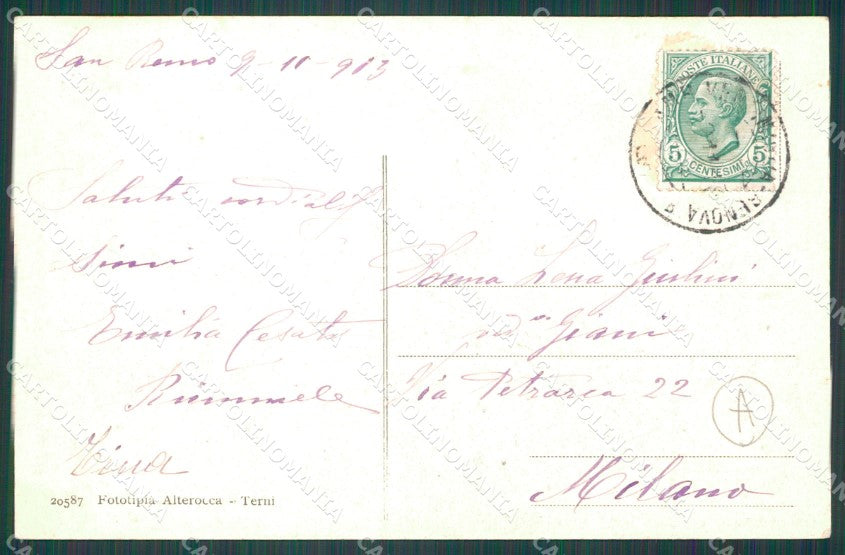 San Remo 9-11-913
Saluti cordialis
simi
Emilia Cesati
Tina
20587 Fototipia Alterocca - Terni
POSTE ITALIANE
5 CENTESIMI 5
GENOVA
Donna Lena Giulini
ved Giani
Via Petrarca 22
A
Milano
CARTOLINOMANIA